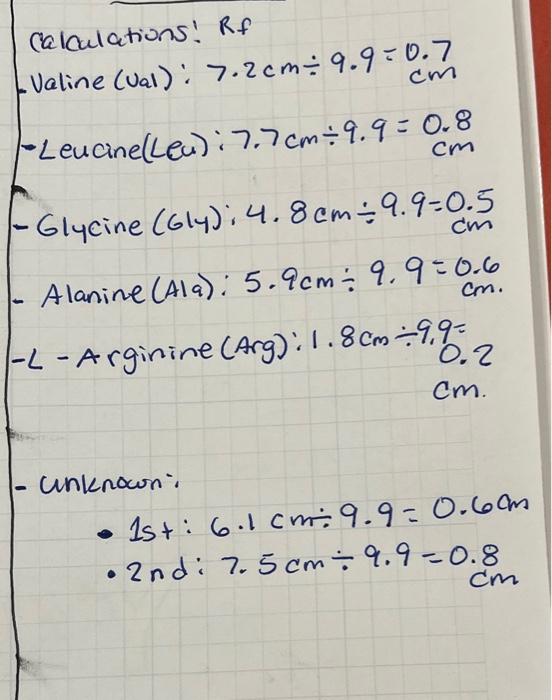 Calculations! Rf
- Valine (Val): 7.2cm ÷ 9.9 = 0.7
cm
- Leucine (Leu): 7.7cm ÷ 9.9 = 0.8
cm
- Glycine (Gly): 4.8cm ÷ 9.9 = 0.5
cm
- Alanine (Ala): 5.9cm ÷ 9.9 = 0.6
cm.
- L - Arginine (Arg): 1.8cm ÷ 9.9 =
0.2
cm.
- unknown:
• 1st: 6.1 cm ÷ 9.9 = 0.6cm
• 2nd: 7.5cm ÷ 9.9 = 0.8
cm